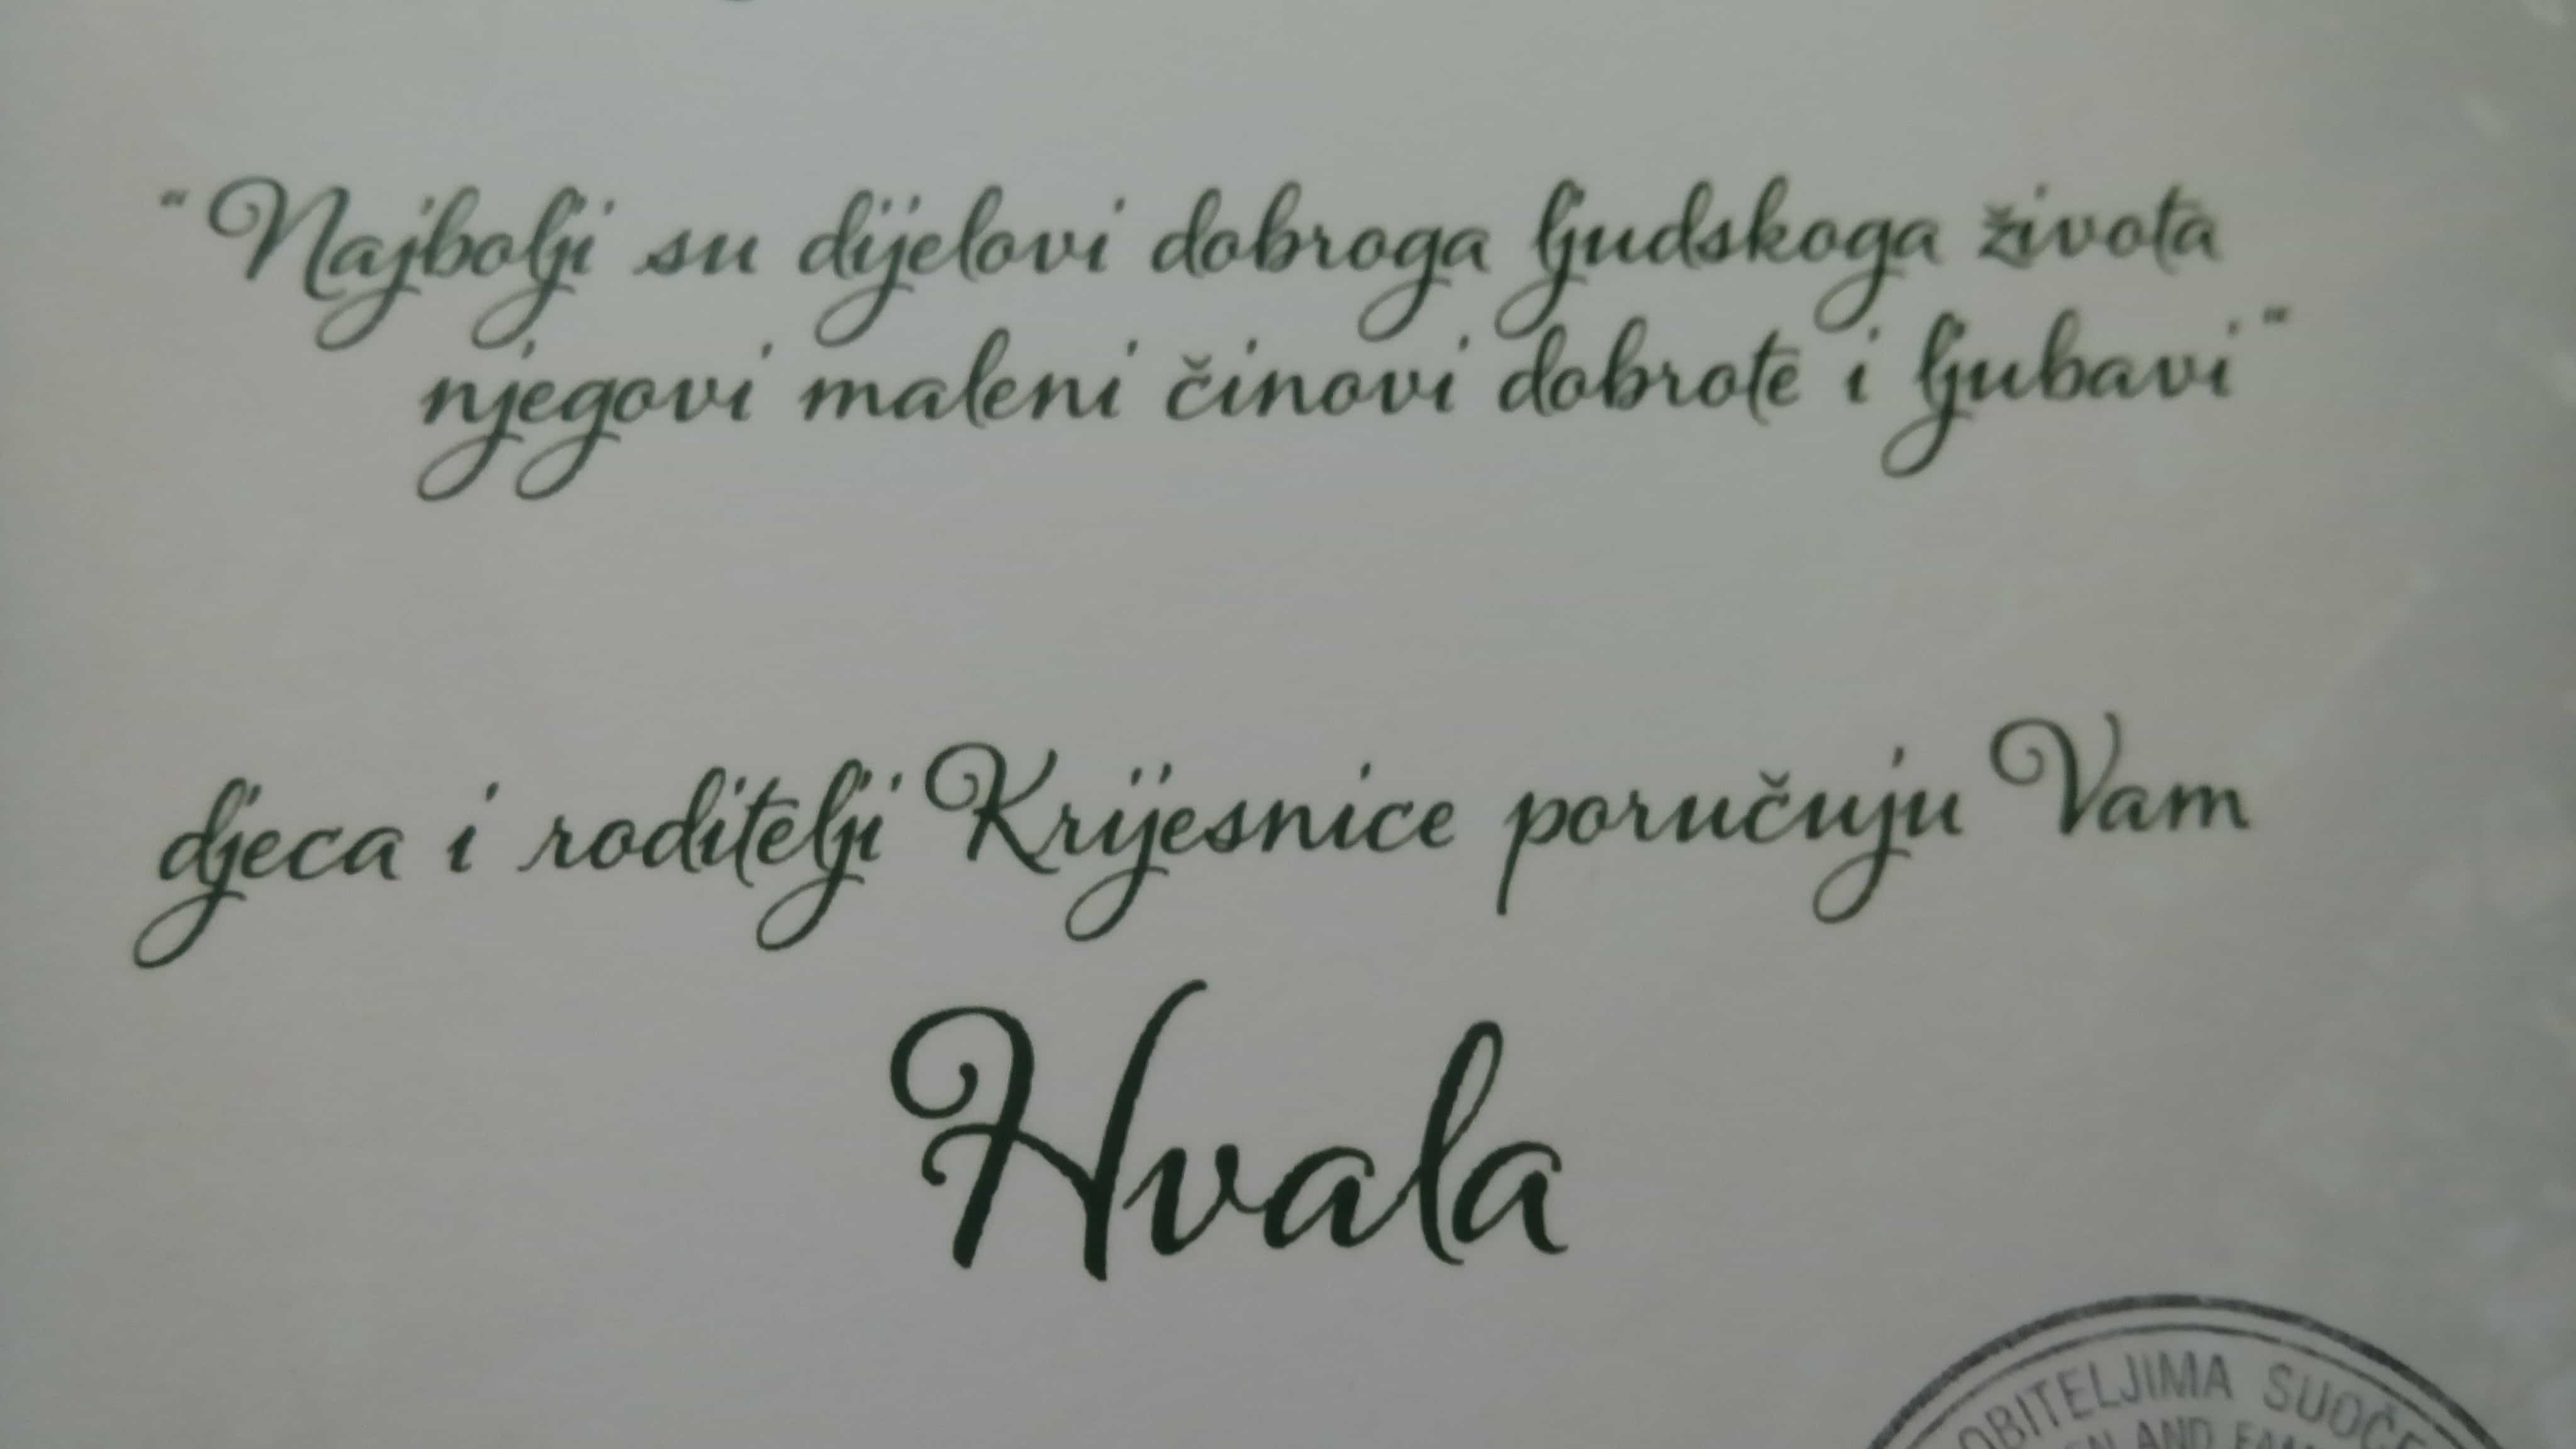 "Najbolji su dijelovi dobroga ljudskoga života
njegovi maleni činovi dobrote i ljubavi"
djeca i roditelji Krijesnice poručuju Vam
Hvala
OBITELJIMA
AND